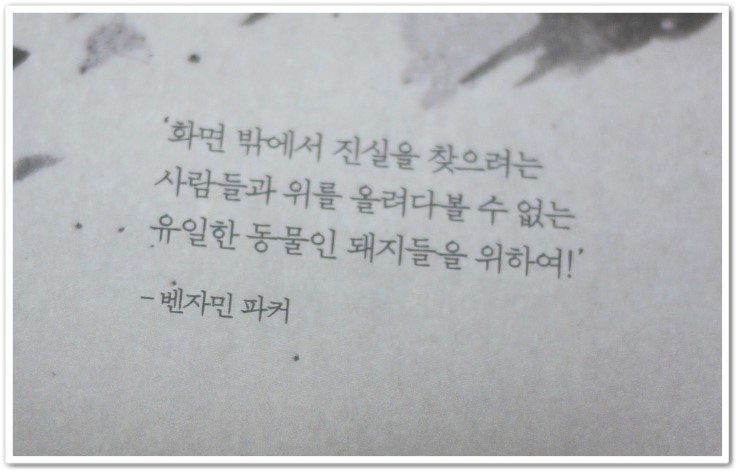 ‘화면 밖에서 진실을 찾으려는
사람들과 위를 올려다볼 수 없는
유일한 동물인 돼지들을 위하여!’
– 벤자민 파커